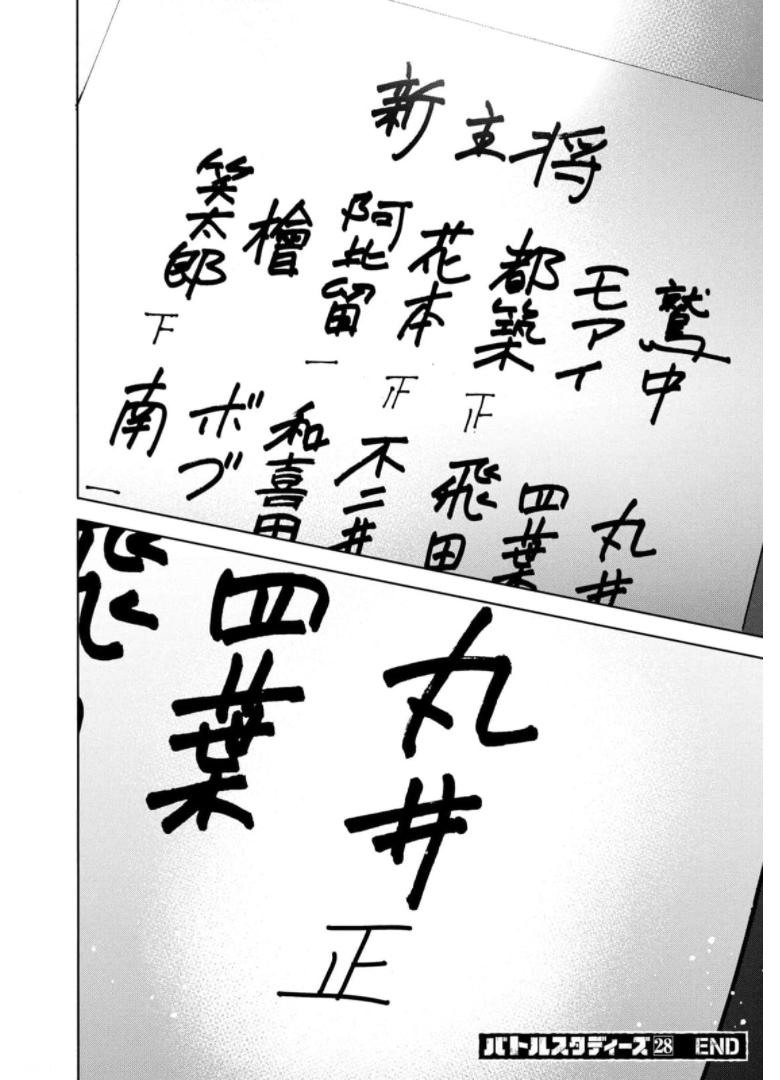 新主将
鷲中
モアイ
都築
正
花本
正
阿比留
一
檜
笑太郎
下
丸井
四葉
飛田
不二井
和喜田
ボブ
南
一
丸井
正
四葉
飛
バトルスタディーズ 28 END